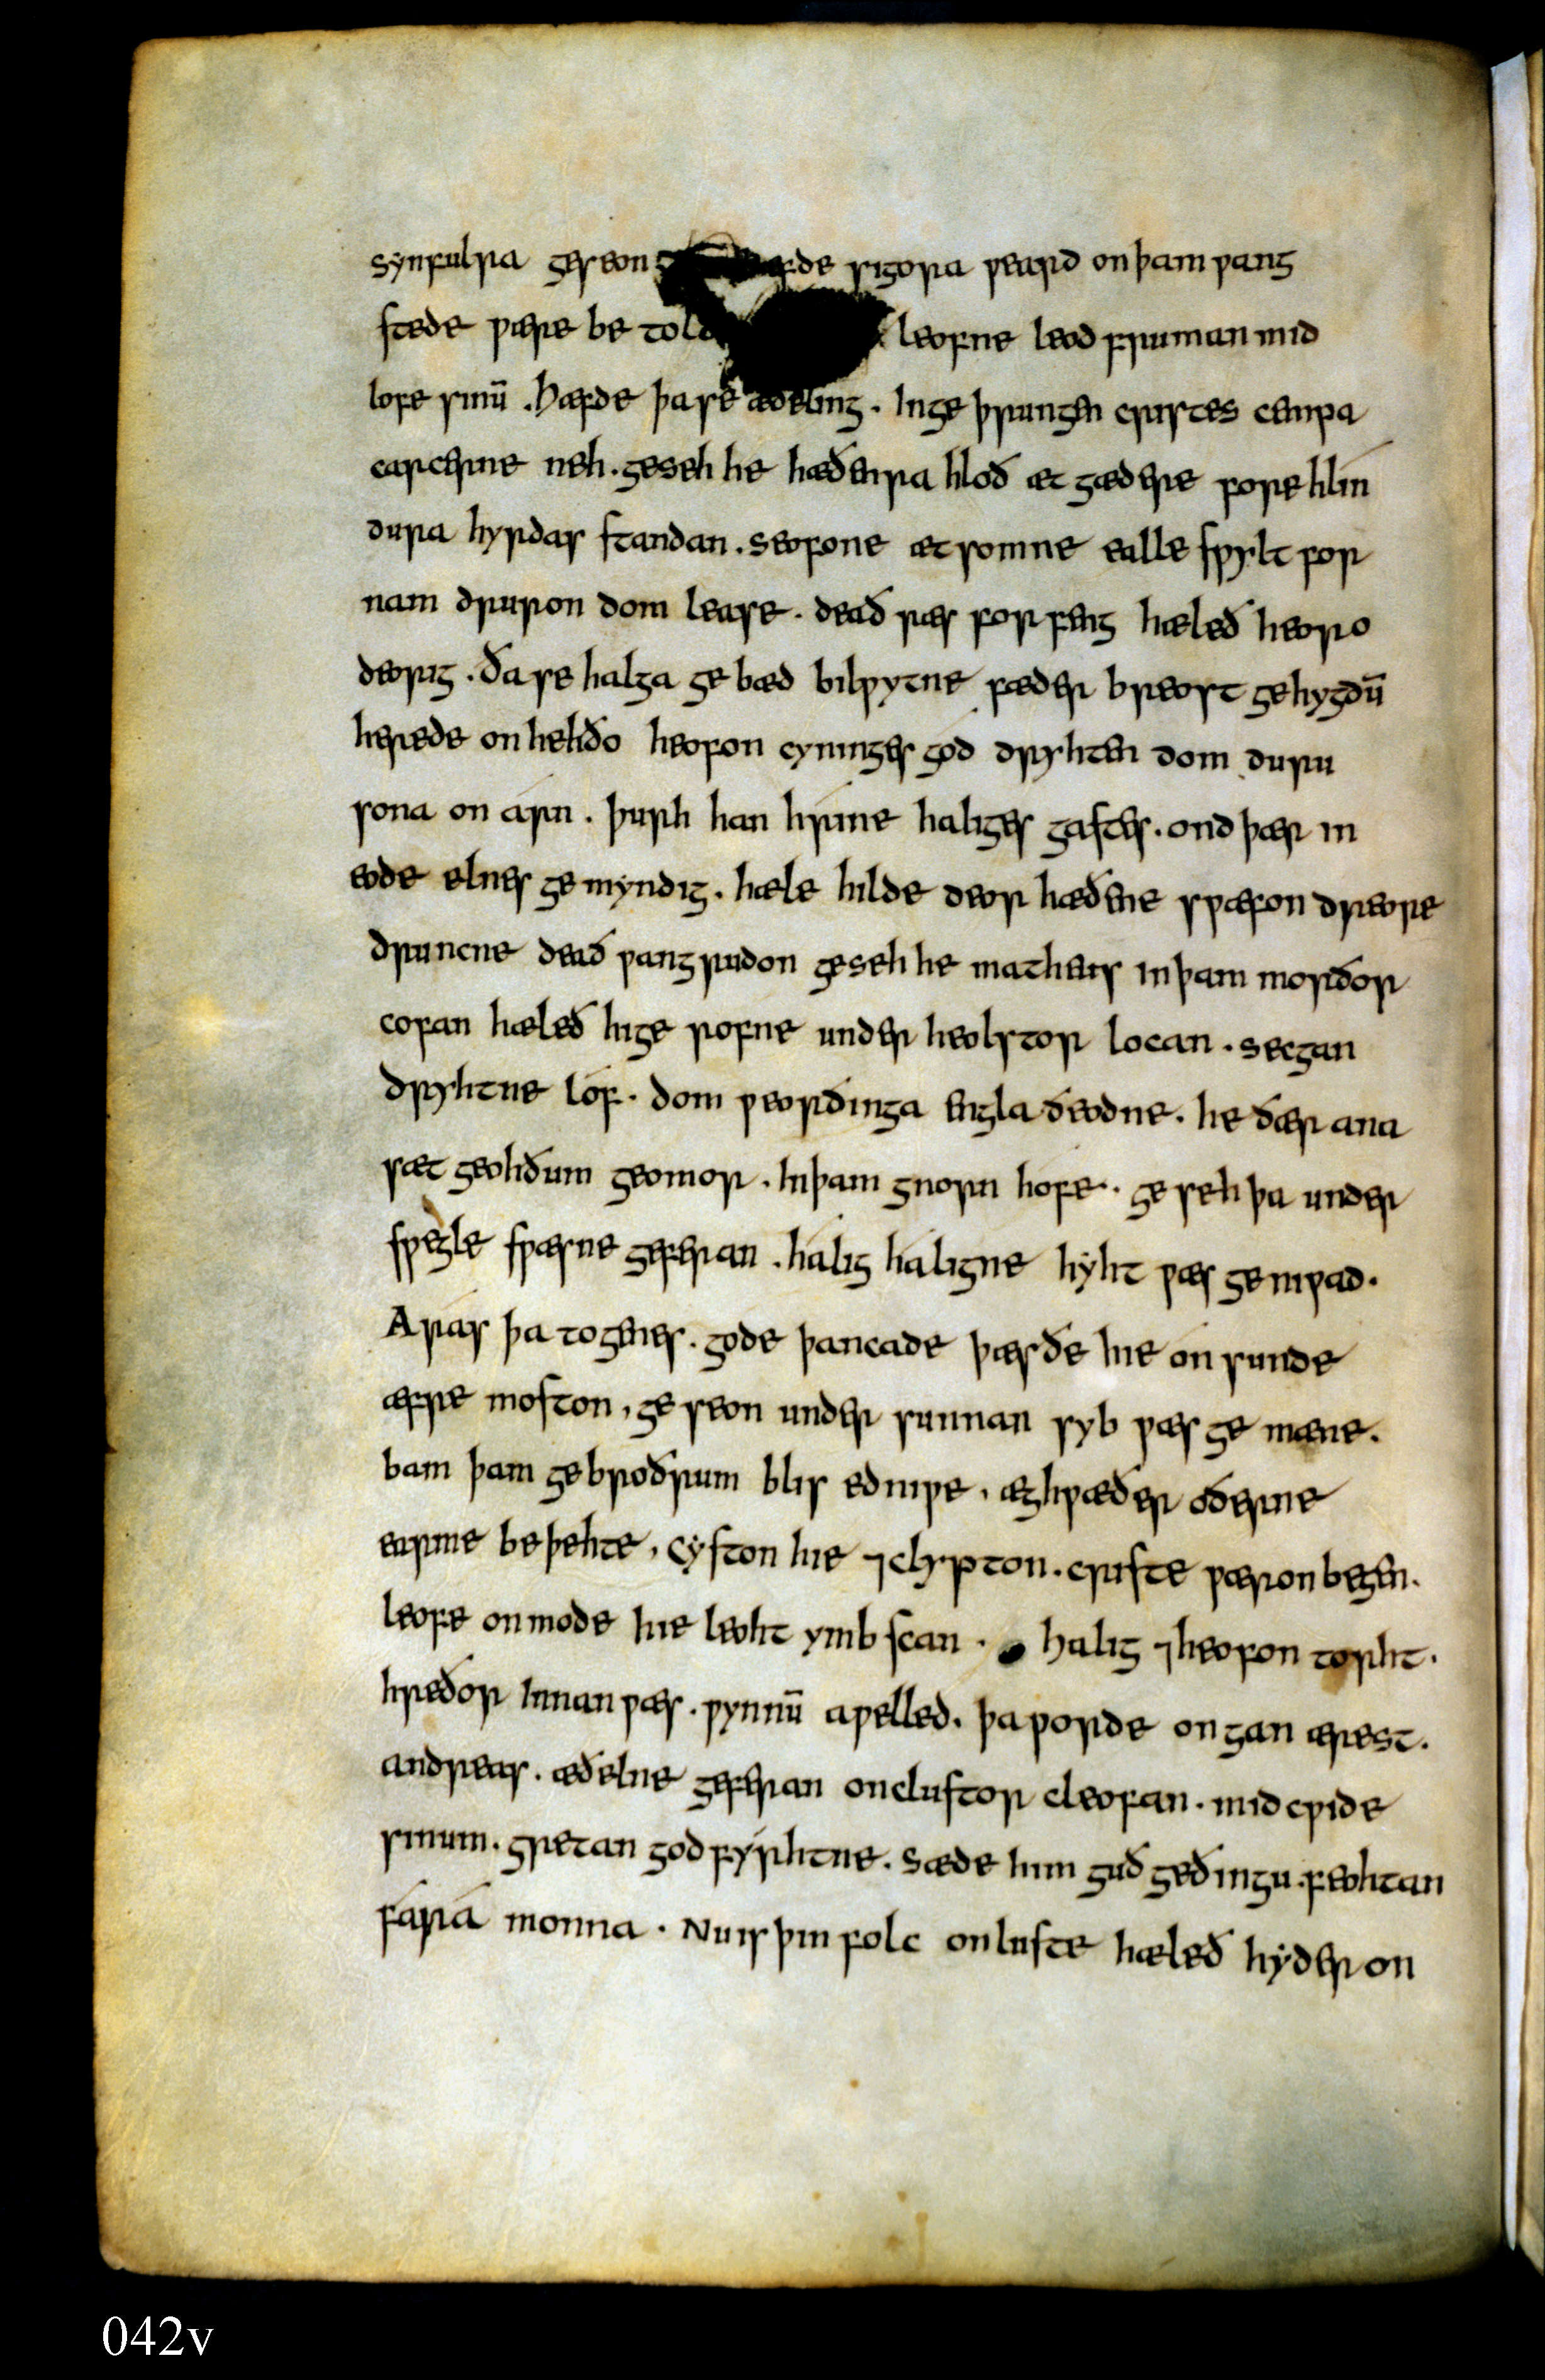 synfulra geseon de sigora ƿeard on þam ƿang
stede ƿære be tol leofne leod fruman mid
lofe sinū . Hæfde þa se æðeling . In ge þrungen cristes cempa
carcerne neh . geseh he hæðenra hloð æt gædere fore hlin
dura hyrdas standan . seofone æt somne ealle sƿylt for
nam druron dom lease . deað ræs for feng hæleð heoro
deorig . Ða se halga ge bæd bilƿytne fæder breost gehygdū
herede on hehðo heofon cyninges gód dryhten dom duru
sona on arn . þurh han hrine haliges gastes . ond þær in
eode elnes ge myndig . hæle hilde deor hæðene sƿæfon dreore
druncne deað ƿang rudon geseh he matheus in þam morðor
cofan hæleð hige rofne under heolstor locan . secgan
dryhtne lóf . dom ƿeorðinga engla ðeodne . he ðær ana
sæt geohðum geomor . In þam gnorn hofe . ge seh þa under
sƿegle sƿæsne geferan . hálig háligne hyht ƿæs ge niƿad .
Arás þa togenes . gode þancade þæs ðe hie ón sunde
æfre moston , ge seon under sunnan syb ƿæs ge mæne .
bam þam gebroðrum blis edniƿe , æghƿæðer óðerne
earme beþehte , cyston hie ⁊ clypton . criste ƿæron begen .
leofe on mode hie leoht ymb scan . halig ⁊ heofon torht .
hreðor Innan ƿæs . ƿynnū aƿelled . þa ƿorde ongan ærest .
andreas . æðelne geferan on clustor cleofan . mid cƿide
sinum . gretan god fyrhtne . sæde him guð geðingu . feohtan
fára monna . Nu is þin folc on luste hæleð hyder on